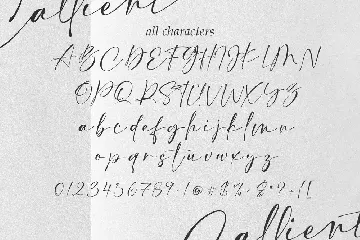 Callient
all characters
ABCDEFGHIJKLMN
OPQRSTUVWXYZ
abcdefghijklmn
opqrstuvwxyz
0123456789
Callient